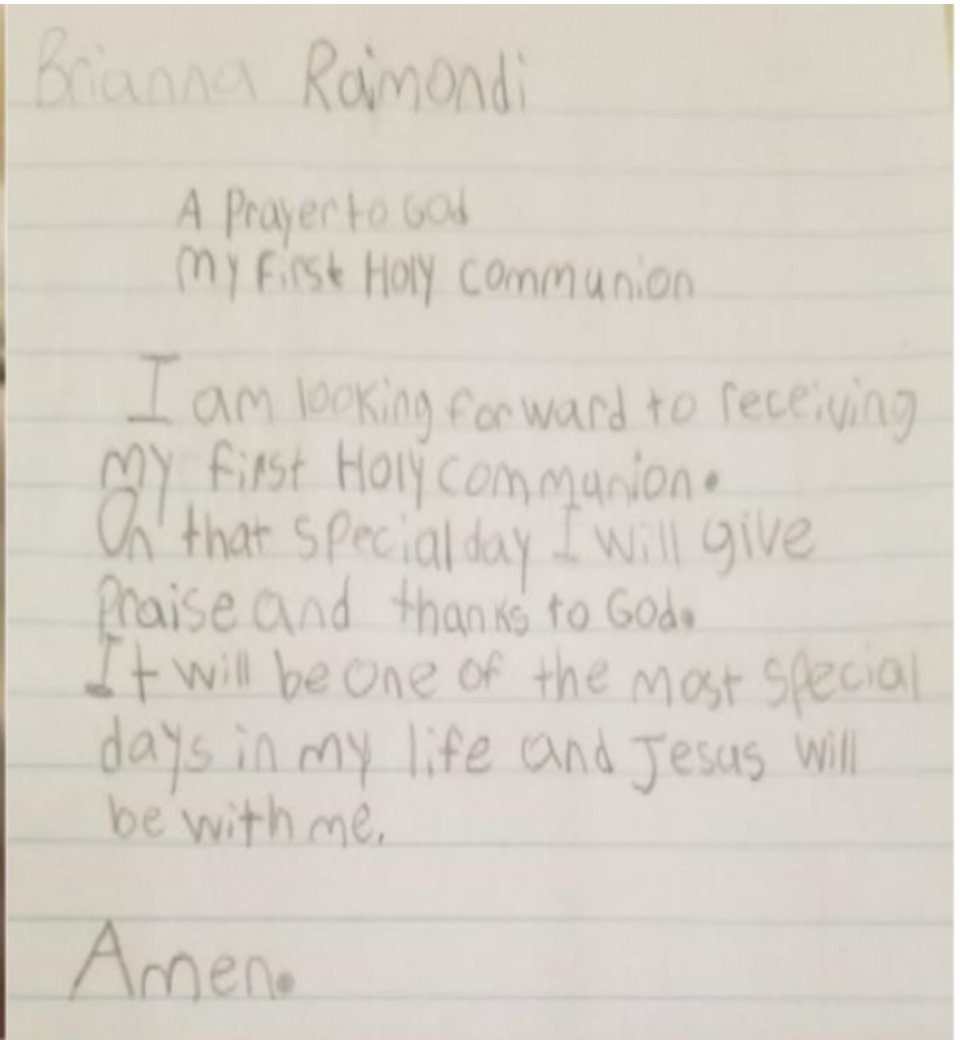 Brianna Raimondi
A Prayer to God
My First Holy Communion
I am looking forward to receiving
my first Holy communion.
On that special day I will give
praise and thanks to God.
It will be one of the most special
days in my life and Jesus will
be with me.
Amen.